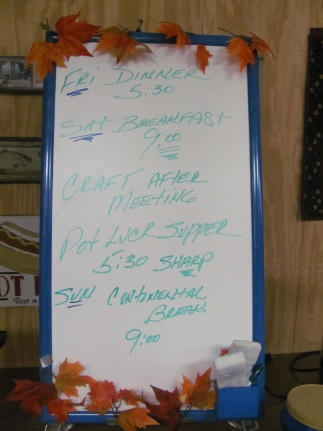 FRI DINNER
5:30
SAT BREAKFAST
9:00
CRAFT AFTER
MEETING
POT LUCK SUPPER
5:30 SHARP
SUN CONTINENTAL
BREAK
9:00
OT
Best in